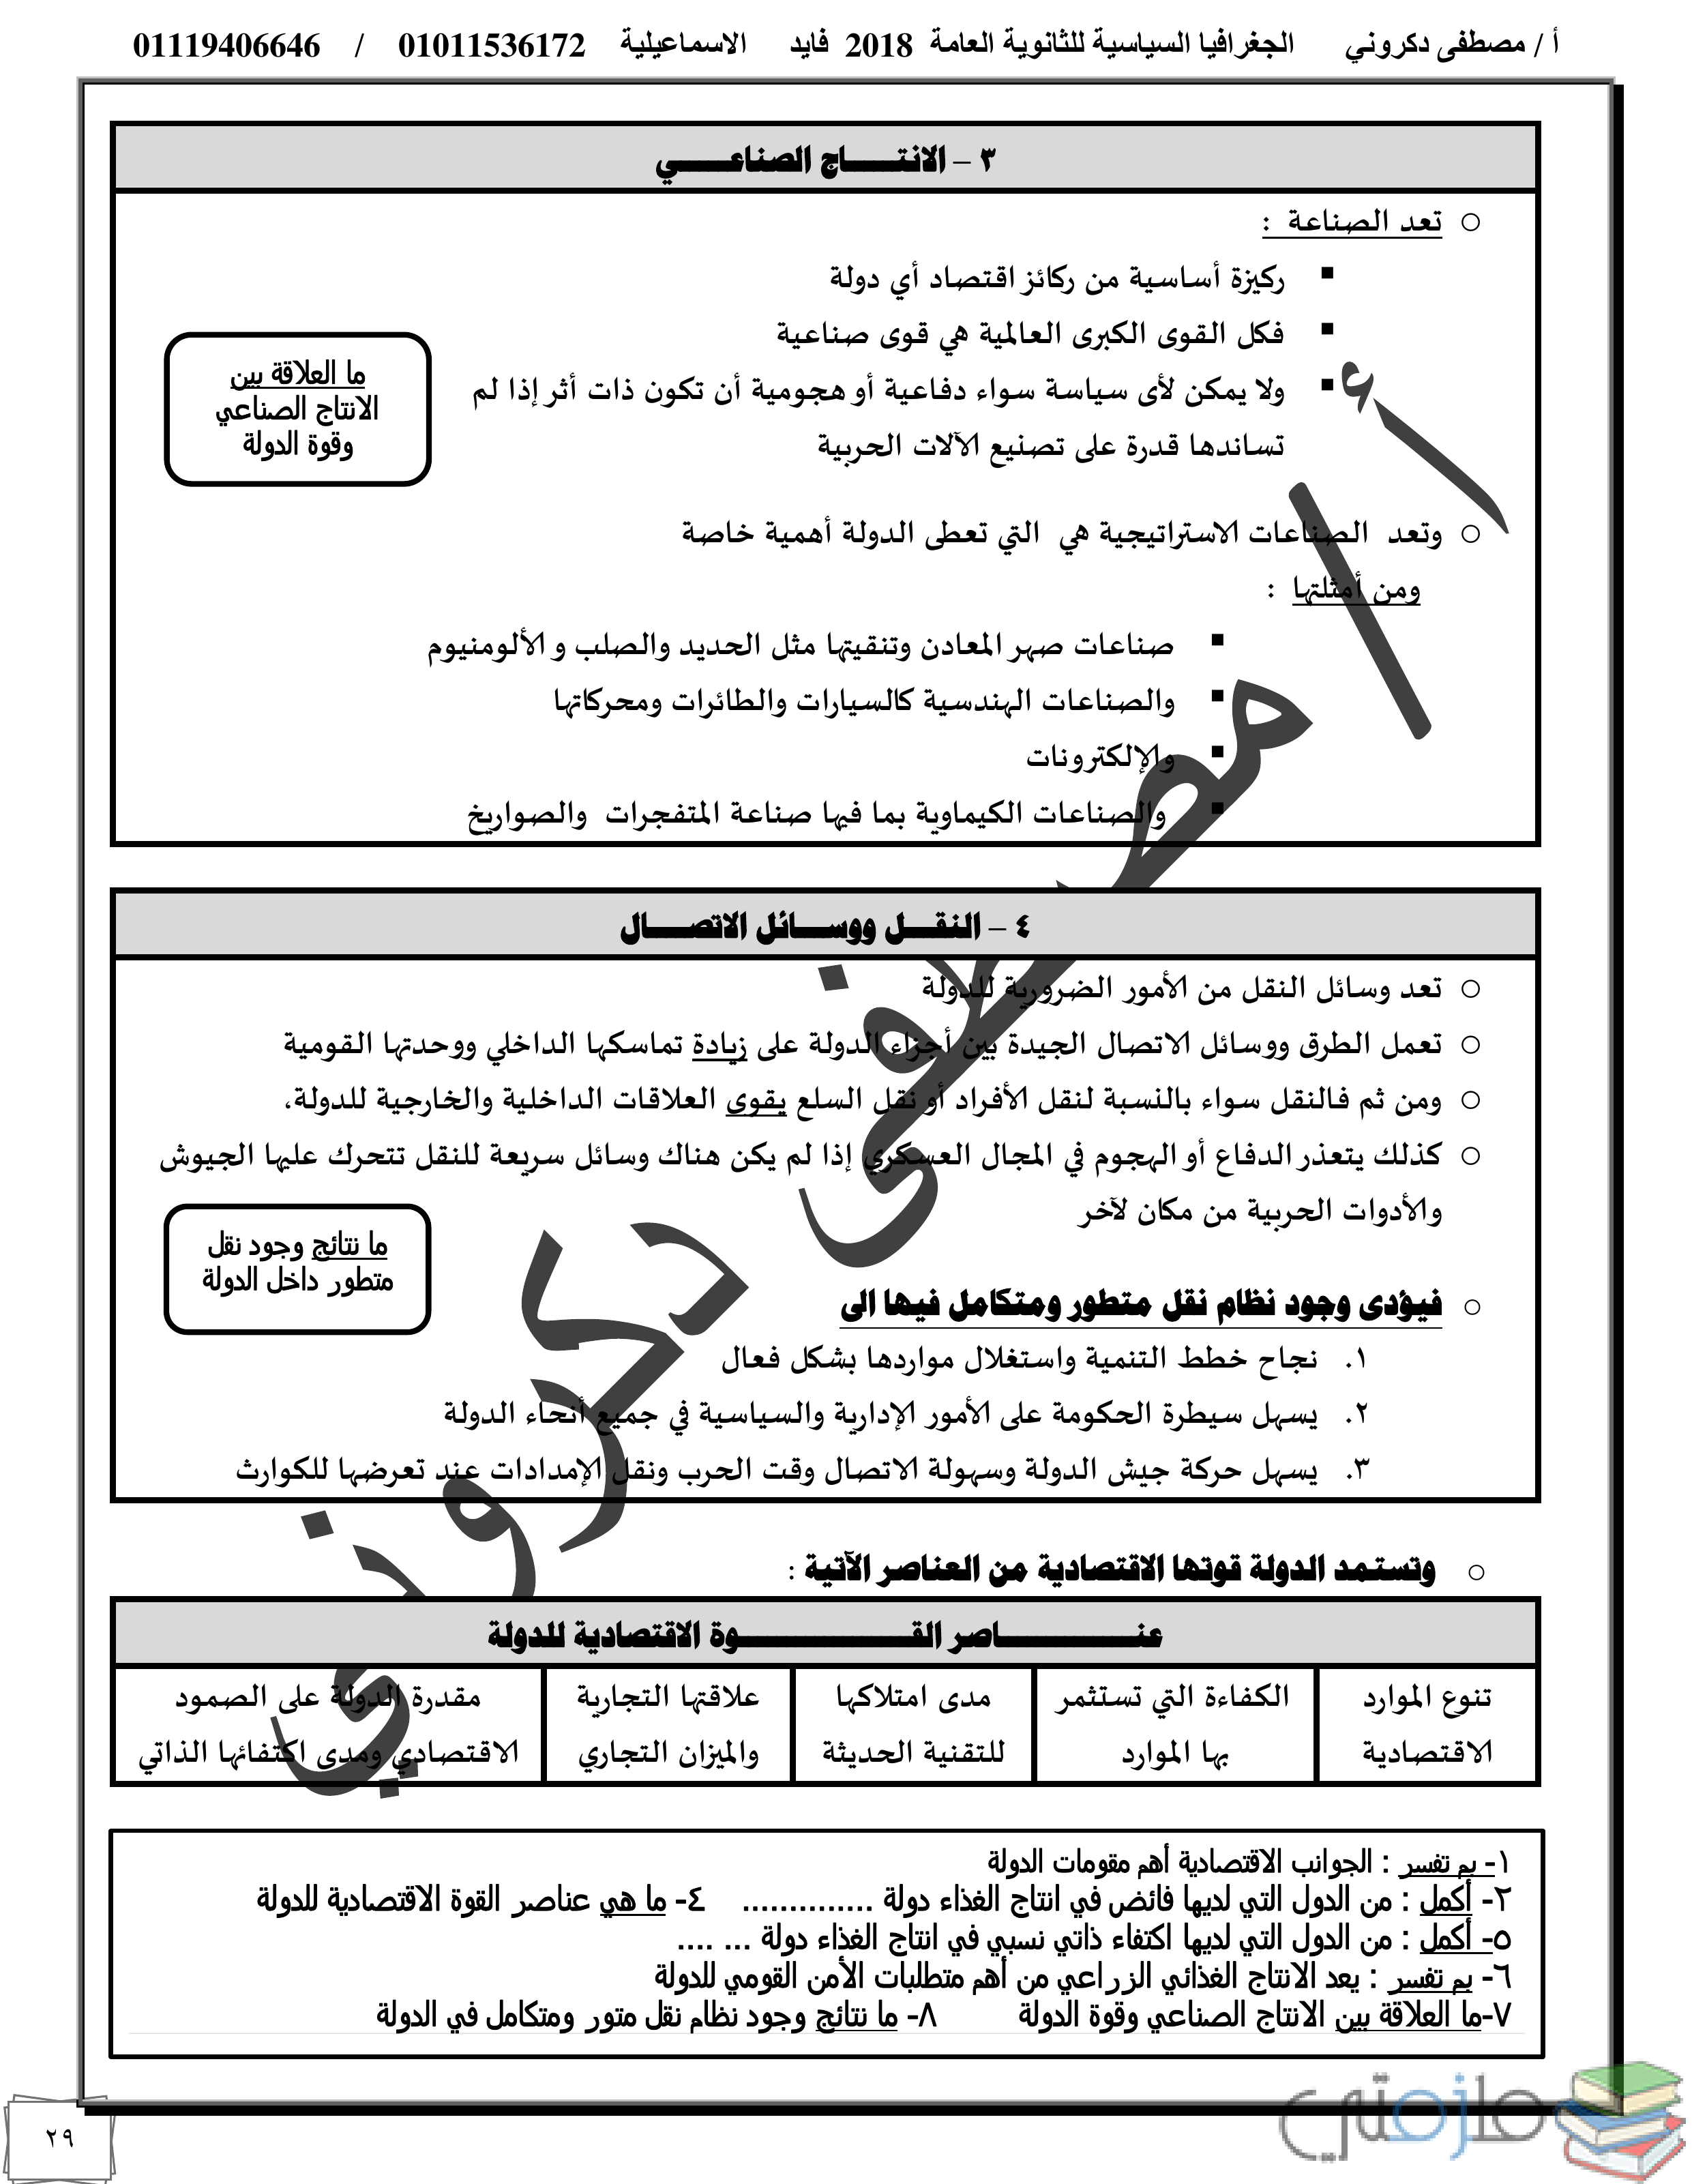 أ / مصطفى دكروني الجغرافيا السياسية للثانوية العامة 2018 فايد الاسماعيلية 01011536172 / 01119406646
٣ – الانتــــاج الصناعــــي
○ تعد الصناعة :
▪ ركيزة أساسية من ركائز اقتصاد أي دولة
▪ فكل القوى الكبرى العالمية هي قوى صناعية
▪ ولا يمكن لأى سياسة سواء دفاعية أو هجومية أن تكون ذات أثر إذا لم
تساندها قدرة على تصنيع الآلات الحربية
ما العلاقة بين
الانتاج الصناعي
وقوة الدولة
○ وتعد الصناعات الاستراتيجية هي التي تعطى الدولة أهمية خاصة
ومن أمثلتها :
▪ صناعات صهر المعادن وتنقيتها مثل الحديد والصلب و الألومنيوم
▪ والصناعات الهندسية كالسيارات والطائرات ومحركاتها
▪ والإلكترونات
▪ والصناعات الكيماوية بما فيها صناعة المتفجرات والصواريخ
٤ – النقــل ووســائل الاتصــال
○ تعد وسائل النقل من الأمور الضرورية للدولة
○ تعمل الطرق ووسائل الاتصال الجيدة بين أجزاء الدولة على زيادة تماسكها الداخلي ووحدتها القومية
○ ومن ثم فالنقل سواء بالنسبة لنقل الأفراد أو نقل السلع يقوى العلاقات الداخلية والخارجية للدولة،
○ كذلك يتعذر الدفاع أو الهجوم في المجال العسكري إذا لم يكن هناك وسائل سريعة للنقل تتحرك عليها الجيوش
والأدوات الحربية من مكان لآخر
ما نتائج وجود نقل
متطور داخل الدولة
○ فيؤدى وجود نظام نقل متطور ومتكامل فيها الى
١. نجاح خطط التنمية واستغلال مواردها بشكل فعال
٢. يسهل سيطرة الحكومة على الأمور الإدارية والسياسية في جميع أنحاء الدولة
٣. يسهل حركة جيش الدولة وسهولة الاتصال وقت الحرب ونقل الإمدادات عند تعرضها للكوارث
○ وتستمد الدولة قوتها الاقتصادية من العناصر الآتية :
عنـــــــاصر القـــــــوة الاقتصادية للدولة
تنوع الموارد
الاقتصادية
الكفاءة التي تستثمر
بها الموارد
مدى امتلاكها
للتقنية الحديثة
علاقتها التجارية
والميزان التجاري
مقدرة الدولة على الصمود
الاقتصادي ومدى اكتفائها الذاتي
١- بم تفسر : الجوانب الاقتصادية أهم مقومات الدولة
٢- أكمل : من الدول التي لديها فائض في انتاج الغذاء دولة .............. ٤- ما هي عناصر القوة الاقتصادية للدولة
٥- أكمل : من الدول التي لديها اكتفاء ذاتي نسبي في انتاج الغذاء دولة ... ....
٦- بم تفسر : يعد الانتاج الغذائي الزراعي من أهم متطلبات الأمن القومي للدولة
٧- ما العلاقة بين الانتاج الصناعي وقوة الدولة ٨- ما نتائج وجود نظام نقل متور ومتكامل في الدولة
أ / مصطفى دكروني
ملزمتي
٢٩